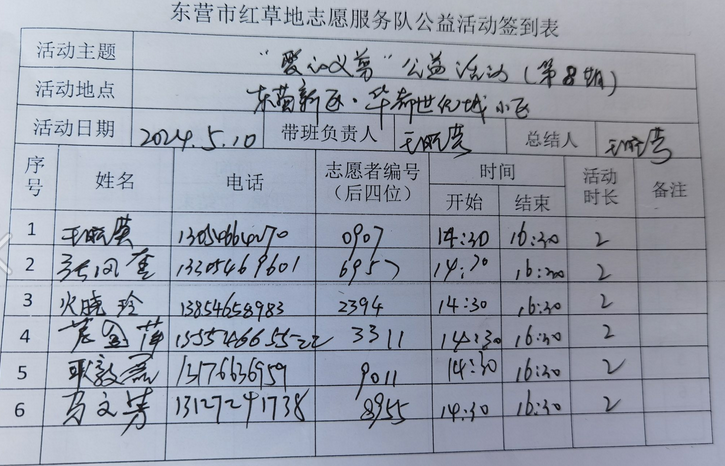 东营市红草地志愿服务队公益活动签到表
活动主题 "爱心义剪"公益活动(第8期)
活动地点 东营新区·华都世纪城小区
活动日期 2024.5.10 带班负责人 王晓英 总结人 王晓英
序号 姓名 电话 志愿者编号(后四位) 时间 开始 结束 活动时长 备注
1 王晓英 13054664270 0907 14:30 16:30 2
2 13305469601 6957 14:30 16:30 2
3 火晓玲 13854658983 2394 14:30 16:30 2
4 金萍 15554665522 3311 14:30 16:30 2
5 耿毅磊 13176636959 9011 14:30 16:30 2
6 马文芳 13127291738 8955 14:30 16:30 2